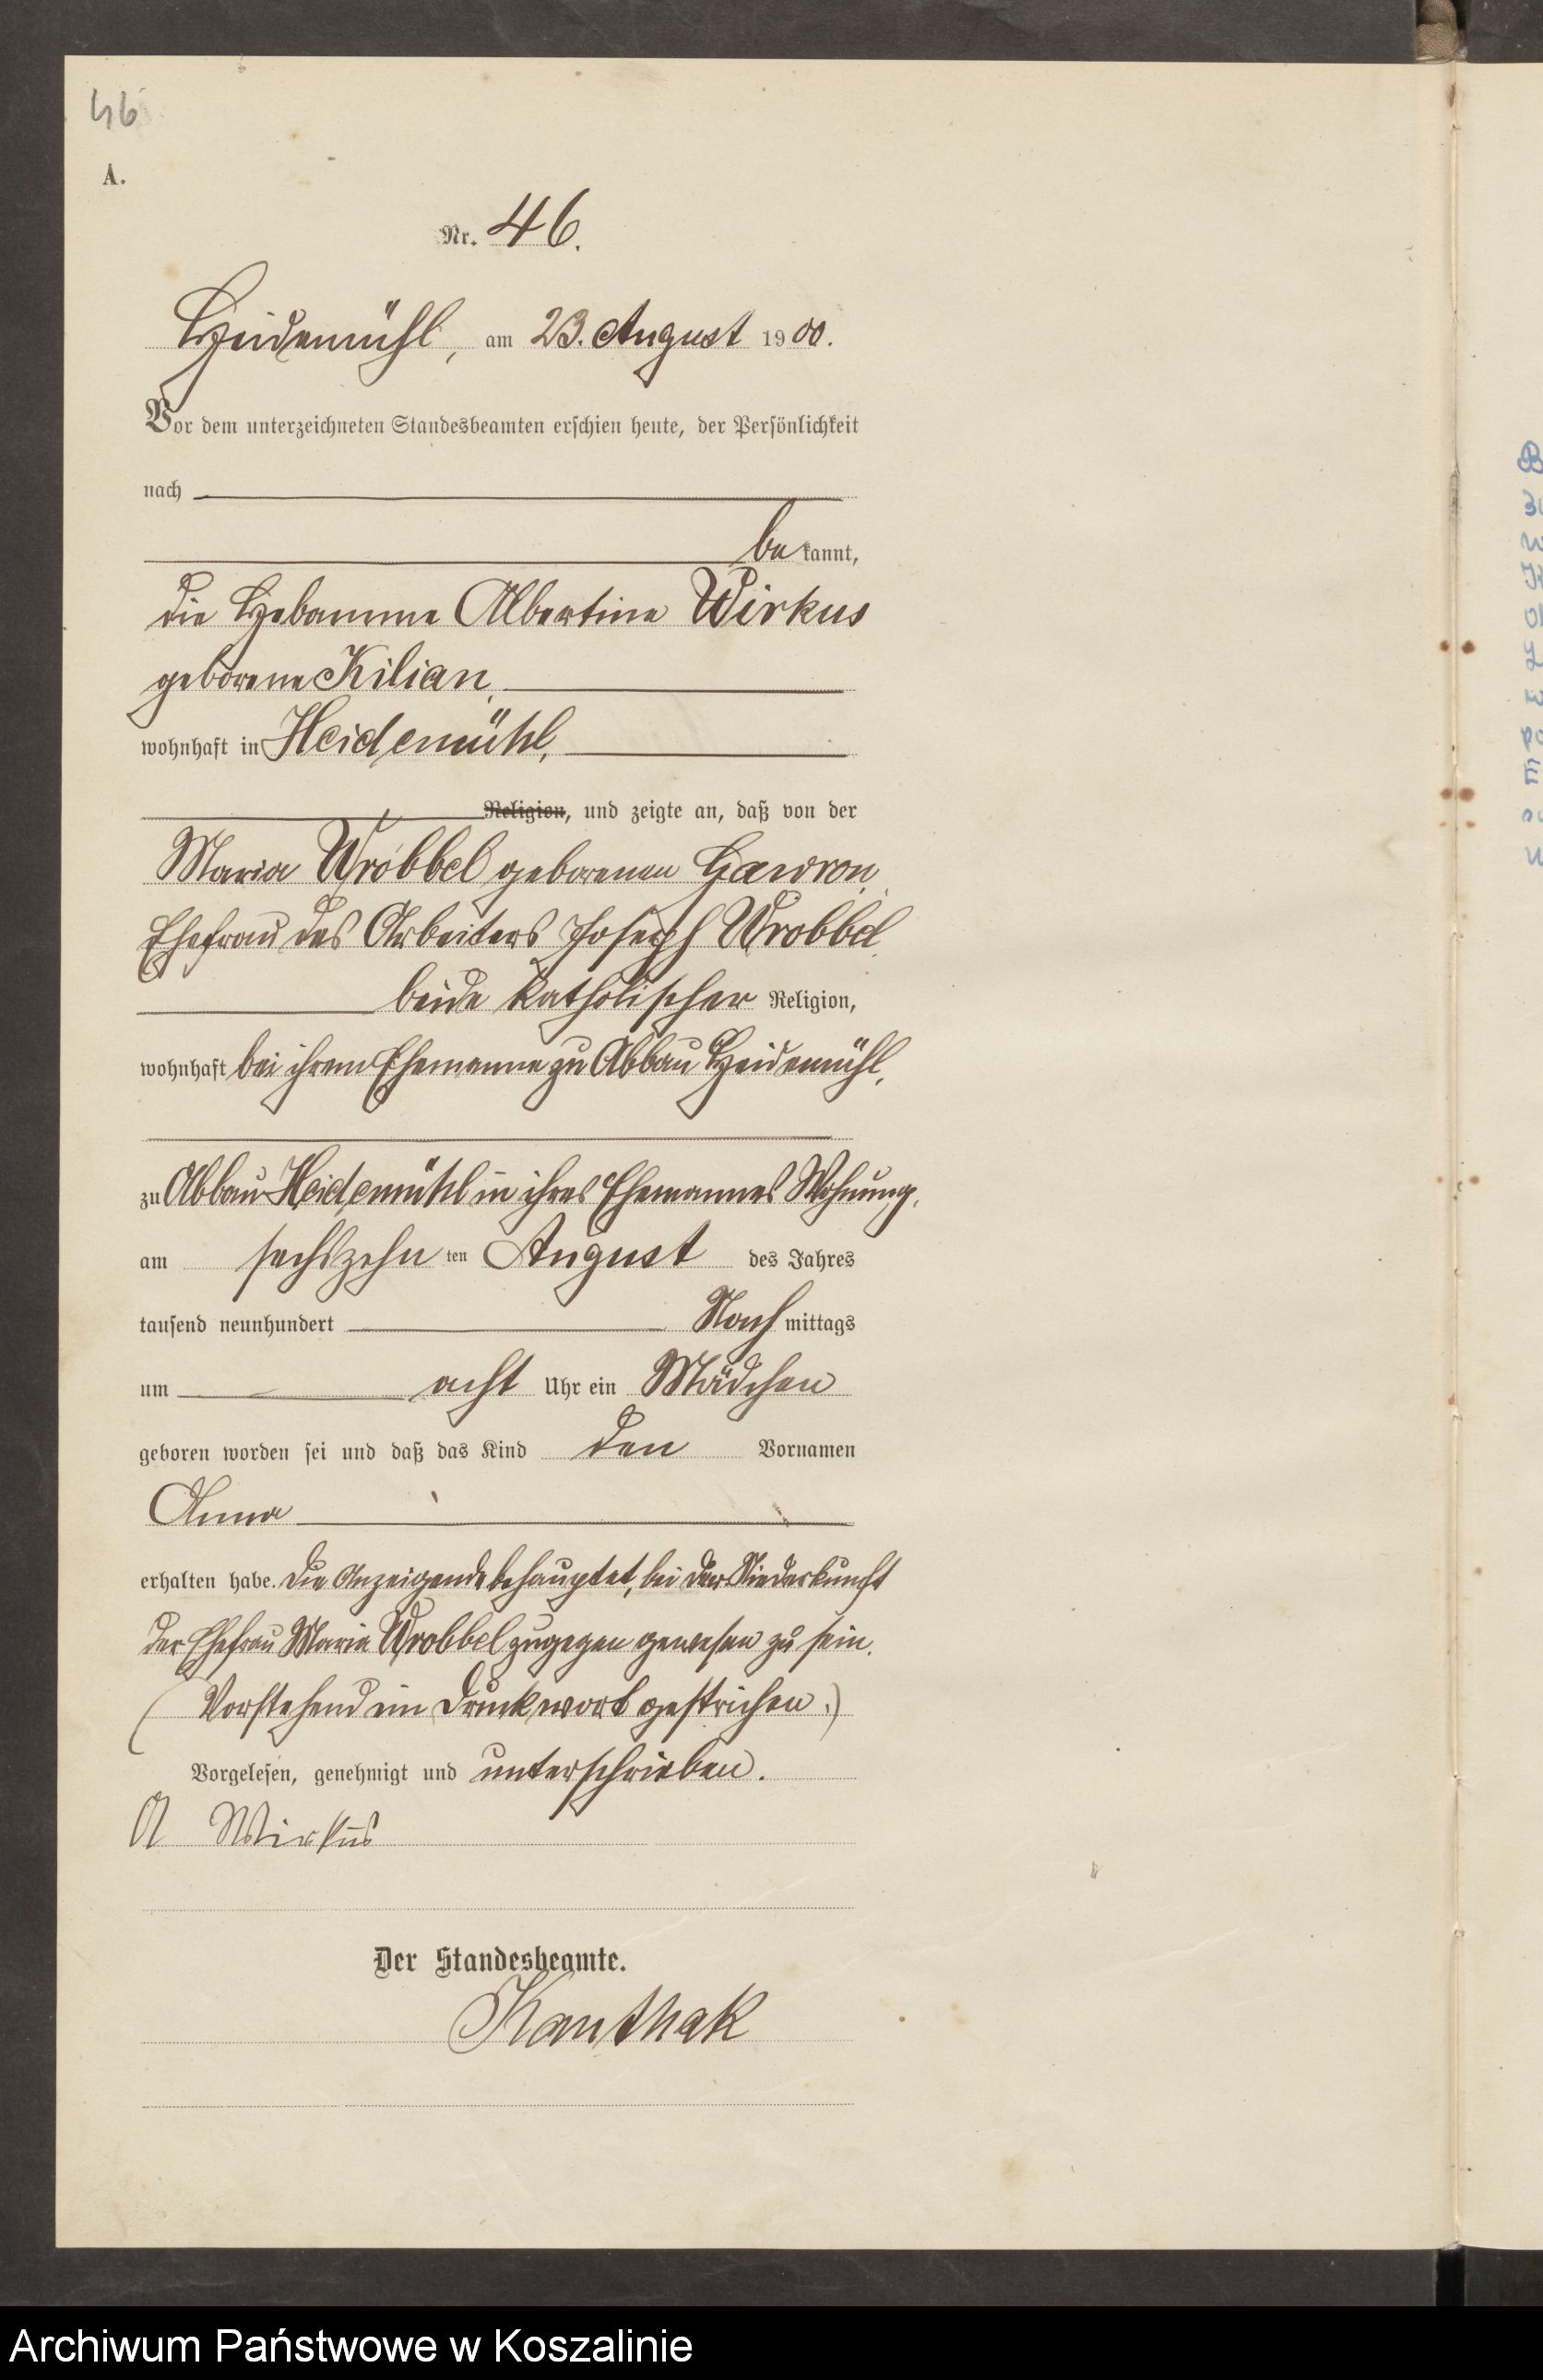 46
A.
Nr. 46.
Heidemühl, am 23. August 1900.
Vor dem unterzeichneten Standesbeamten erschien heute, der Persönlichkeit
nach
be kannt,
die Hebamme Albertine Wirkus
geborene Kilian,
wohnhaft in Heidemühl,
Religion, und zeigte an, daß von der
Maria Wrobbel geborenen Gawron,
Ehefrau des Arbeiters Joseph Wrobbel,
beide katholischer Religion,
wohnhaft bei ihrem Ehemanne zu Abbau Heidemühl,
zu Abbau Heidemühl in ihres Ehemannes Wohnung,
am sechszehn ten August des Jahres
tausend neunhundert Nach mittags
um acht Uhr ein Mädchen
geboren worden sei und daß das Kind den Vornamen
Anna
erhalten habe. Die Anzeigende behauptet, bei der Niederkunft
der Ehefrau Maria Wrobbel zugegen gewesen zu sein.
(Vorstehend ein Druckwort gestrichen.)
Vorgelesen, genehmigt und unterschrieben.
A Wirkus
Der Standesbeamte.
Kanthak
Archiwum Państwowe w Koszalinie